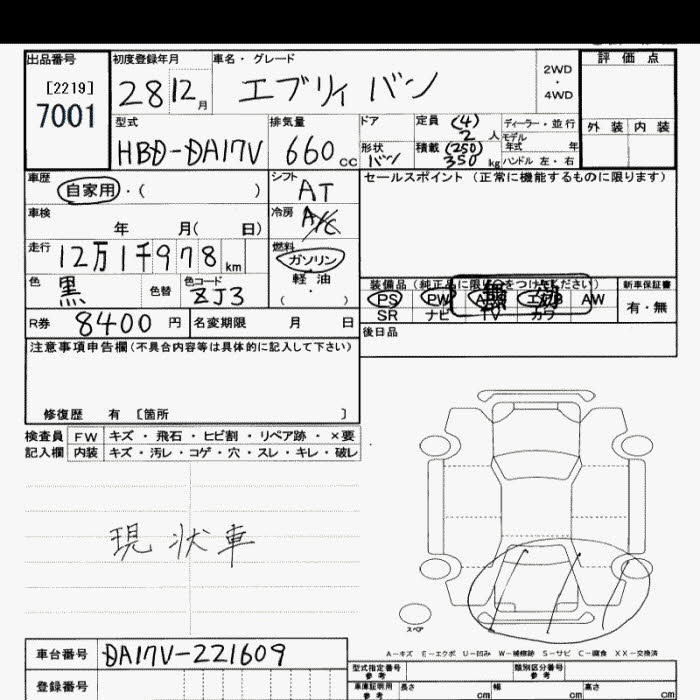 出品番号 初度登録年月 車名・グレード 評価点
[2219] 28 12月 エブリィ バン 2WD・4WD
7001
型式 排気量 ドア 定員 (4) 2人 ディーラー・並行 外装 内装
HBD-DA17V 660cc 形状 バン 積載 (250) 350kg モデル年式 年 ハンドル 左・右
車歴 シフト セールスポイント (正常に機能するものに限ります)
自家用・( ) AT
車検 冷房
年 月( 日) A/C
走行 燃料
12万1千978km ガソリン
色 色替 色コード 軽油 装備品 (純正品に限り○をつけてください) 新車保証書
黒 ZJ3 ( ・ ) PS PW AW 有・無
SR ナビ TV カワ
R券 8400円 名変期限 月 日 後日品
注意事項申告欄(不具合内容等は具体的に記入して下さい)
修復歴 有 〔箇所 〕
検査員 FW キズ・飛石・ヒビ割・リペア跡・×要
記入欄 内装 キズ・汚レ・コゲ・穴・スレ・キレ・破レ
現状車
スペア
A−キズ E−エクボ U−凹み W−補修跡 S−サビ C−腐食 XX−交換済
車台番号 DA17V-221609
型式指定番号 参考 類別区分番号 参考
登録番号 車庫証明用 参考 長さ cm 幅 cm 高さ cm